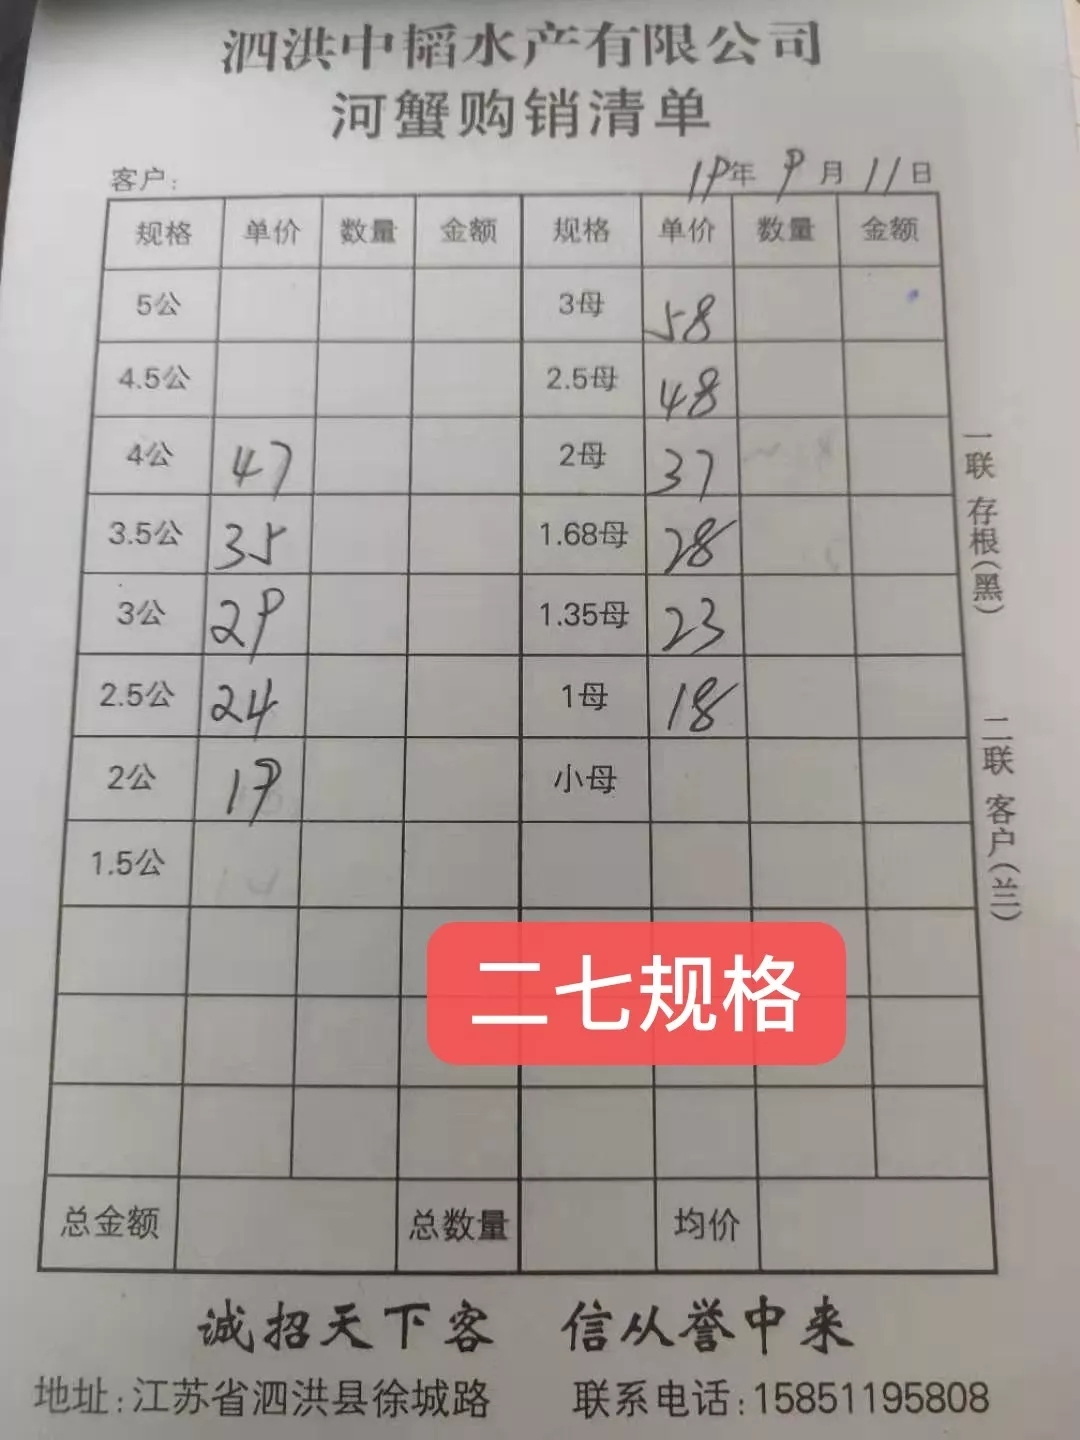 泗洪中韬水产有限公司
河蟹购销清单
客户: 19年 9月 11日
规格 单价 数量 金额 规格 单价 数量 金额
5公 3母 58
4.5公 2.5母 48
4公 47 2母 37
3.5公 35 1.68母 28
3公 29 1.35母 23
2.5公 24 1母 18
2公 19 小母
1.5公
二七规格
总金额 总数量 均价
一联 存根(黑)
二联 客户(兰)
诚招天下客 信从誉中来
地址:江苏省泗洪县徐城路 联系电话:15851195808